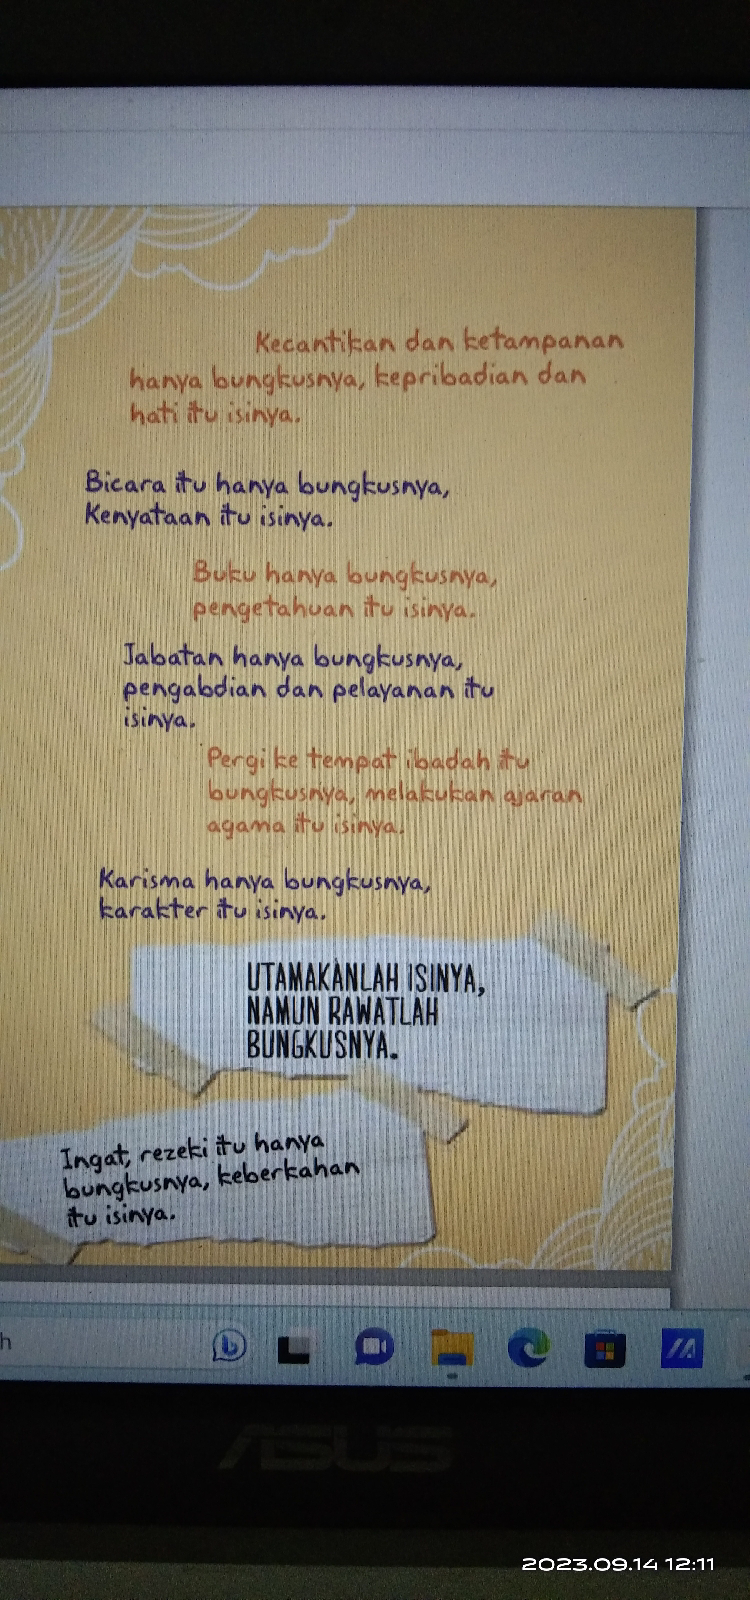 Kecantikan dan ketampanan
hanya bungkusnya, kepribadian dan
hati itu isinya.
Bicara itu hanya bungkusnya,
Kenyataan itu isinya.
Buku hanya bungkusnya,
pengetahuan itu isinya.
Jabatan hanya bungkusnya,
pengabdian dan pelayanan itu
isinya.
Pergi ke tempat ibadah itu
bungkusnya, melakukan ajaran
agama itu isinya.
Karisma hanya bungkusnya,
karakter itu isinya.
UTAMAKANLAH ISINYA,
NAMUN RAWATLAH
BUNGKUSNYA.
Ingat, rezeki itu hanya
bungkusnya, keberkahan
itu isinya.
h
ASUS
2023.09.14 12:11